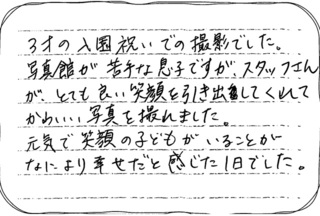 3才の入園祝いでの撮影でした。
写真館が苦手な息子ですが、スタッフさん
が、とても良い笑顔を引き出してくれて
かわいい写真を撮れました。
元気で笑顔の子どもがいることが
なにより幸せだと感じた1日でした。